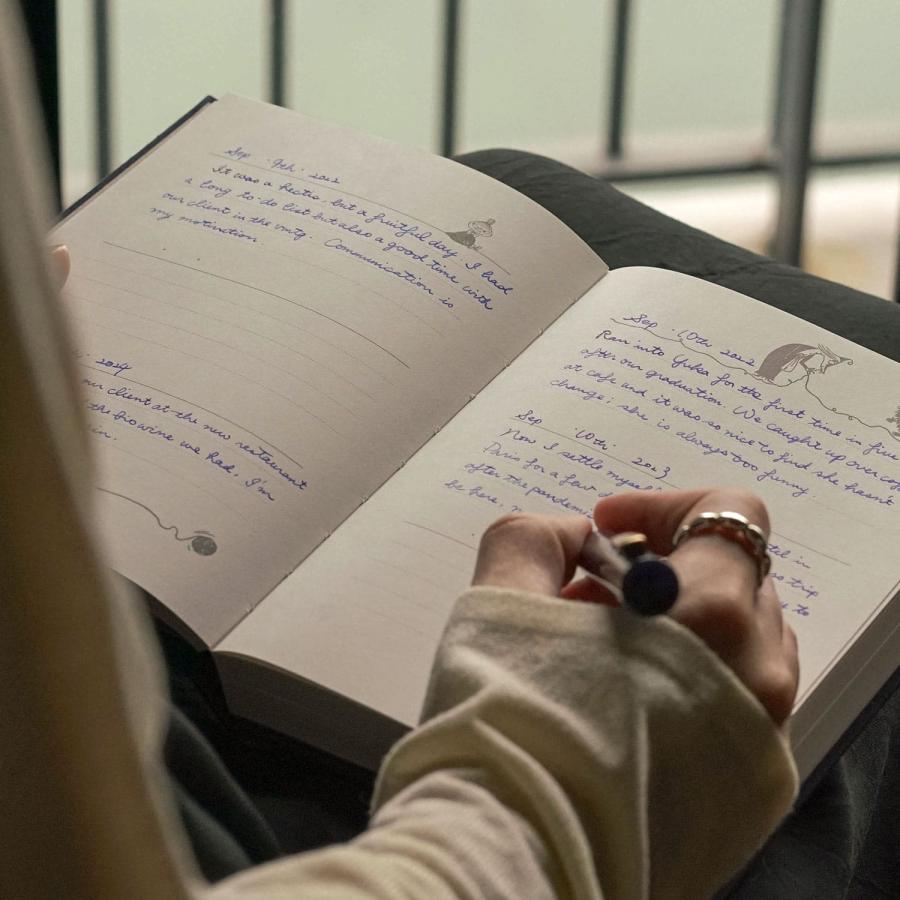 Sep . 9th . 2022
It was a hectic but a fruitful day. I had
a long to-do list but also a good time with
our client in the vmtg. Communication is
my motivation
2024
our client at the new restaurant
the bio wine we had. I'm
in.
Sep . 10th 2022
Ran into Yuka for the first time in five
after our graduation. We caught up over
at cafe and it was so nice to find she hasn't
change; she is always too funny.
Sep . 10th . 2023
Now I settle myself
in
Paris for a few
trip
after the pandemic
to
be here,